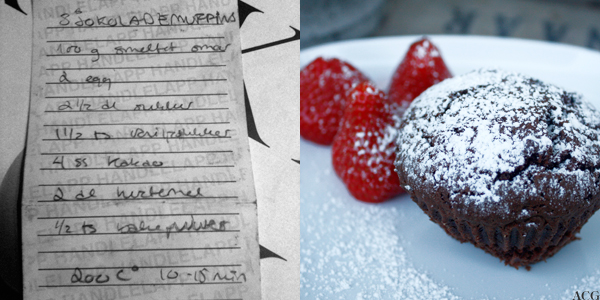 SJOKOLADEMUFFINS
100 g smeltet smør
2 egg
2 1/2 dl sukker
1 1/2 ts vaniljesukker
4 ss kakao
2 dl hvetemel
1/2 ts bakepulver
200 C° 10-15 min
HANDLELAPP HANDLELAPP
ACG